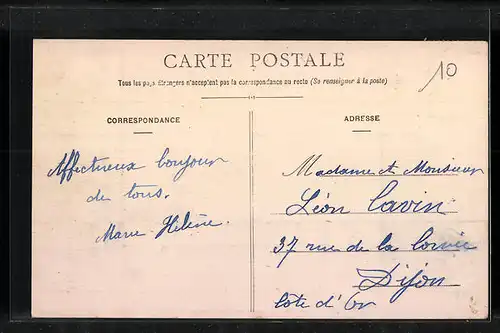 CARTE POSTALE
Tous les pays étrangers n'acceptent pas la correspondance au recto (Se renseigner à la poste)
10
CORRESPONDANCE
ADRESSE
Affectueux bonjour
de tous.
Marie-Hélène.
Madame et Monsieur
Léon Cavin
37 rue de la
Dijon
Côte d'Or